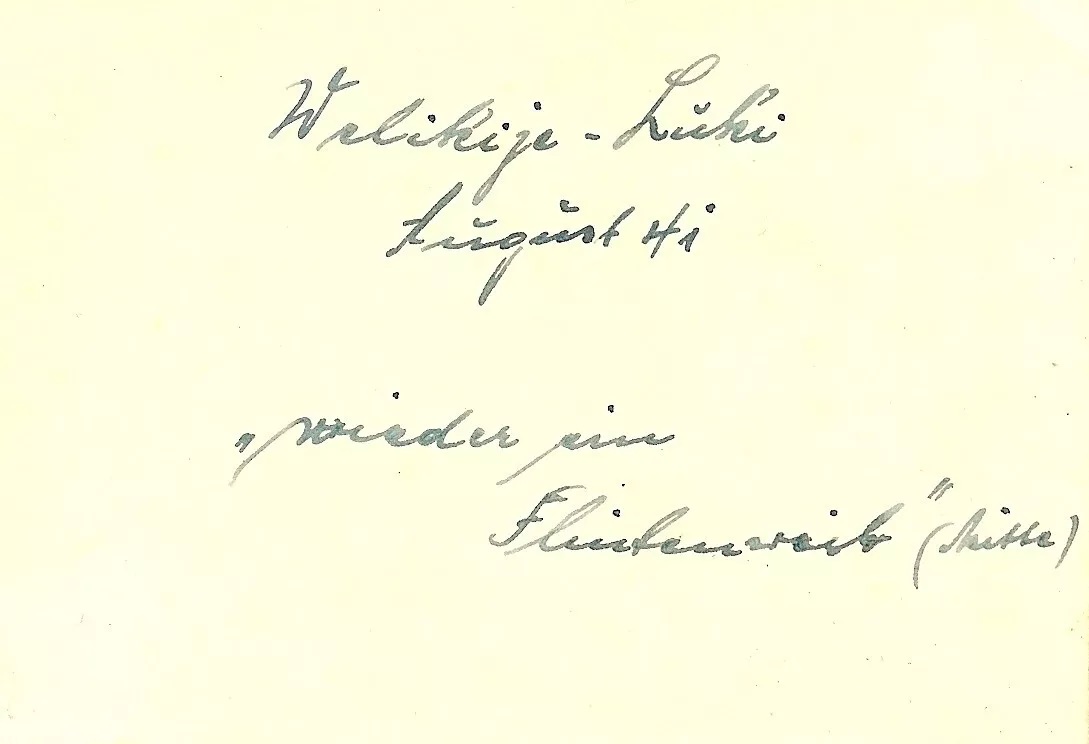 Welikije - Luki
August 41
„wieder ein
Flintenweib" (Mitte)